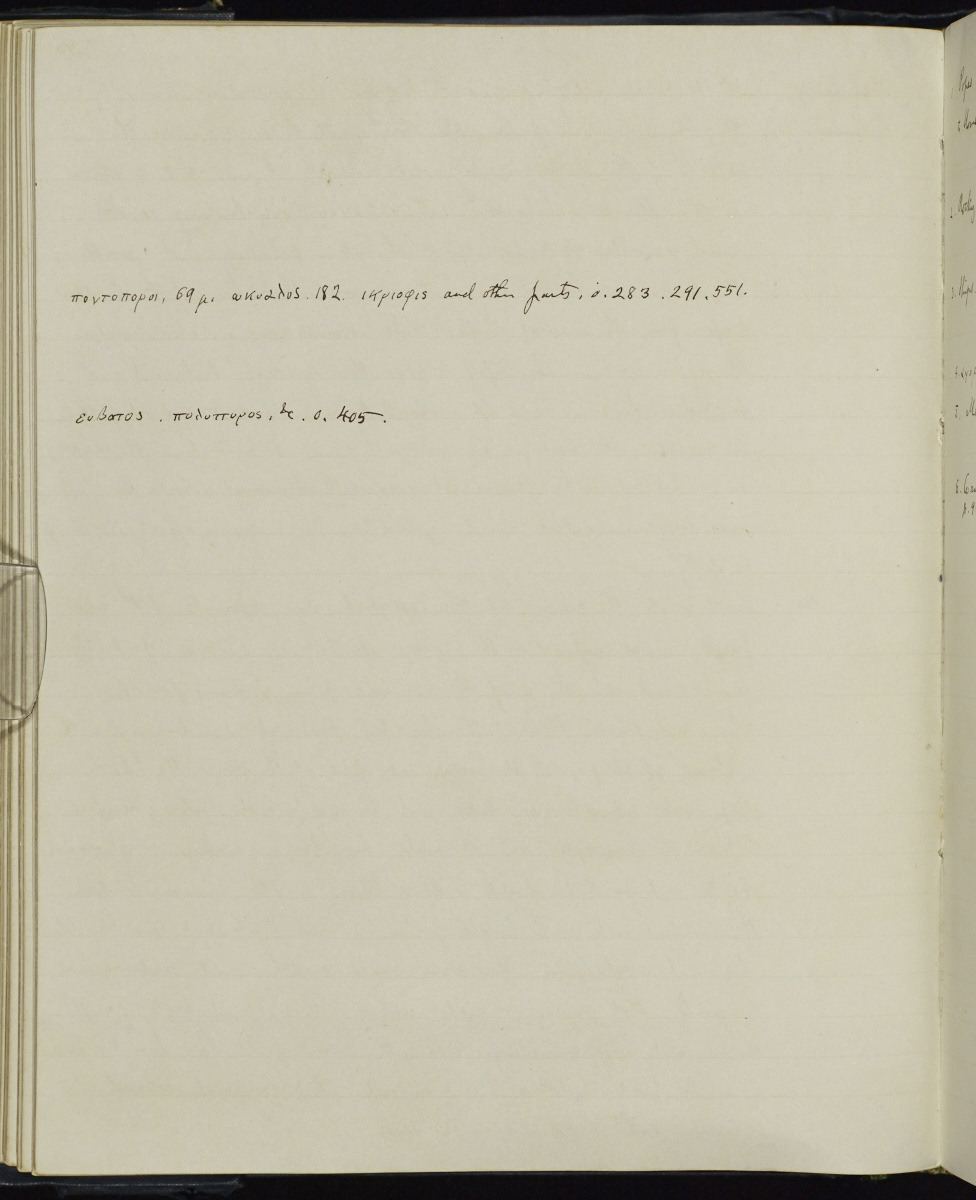 ποντοποροι, 69 μ. ωκυαλος. 182. ικριοφις and other parts, ο. 283. 291. 551.
ευβοτος. πολυπυρος, &c. ο. 405.